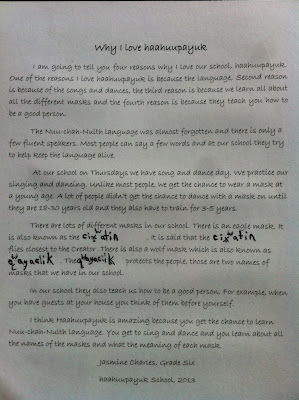 Why I love haahuupayuk
I am going to tell you four reasons why I love our school, haahuupayuk.
One of the reasons I love haahuupayuk is because the language. Second reason
is because of the songs and dances, the third reason is because we learn all about
all the different masks and the fourth reason is because they teach you how to
be a good person.
The Nuu-chah-Nulth language was almost forgotten and there is only a
few fluent speakers. Most people can say a few words and at our school they try
to help keep the language alive.
At our school on Thursdays we have song and dance day. We practice our
singing and dancing. Unlike most people, we get the chance to wear a mask at
a young age. A lot of people didn't get the chance to dance with a mask on until
they are 25-30 years old and they also have to train for 3-5 years.
There are lots of different masks in our school. There is an eagle mask. It
is also known as the c̓ix̌ʷatin . It is said that the c̓ix̌ʷatin
flies closest to the Creator. There is also a wolf mask which is also known as
qʷayac̓iik. The qʷayac̓iik protects the people, those are two names of
masks that we have in our school.
In our school they also teach us how to be a good person. For example, when
you have guests at your house you think of them before yourself.
I think Haahuupayuk is amazing because you get the chance to learn
Nuu-chah-Nulth language. You get to sing and dance and you learn about all
the names of the masks and what the meaning of each mask.
Jasmine Charles, Grade Six
haahuupayuk School, 2013